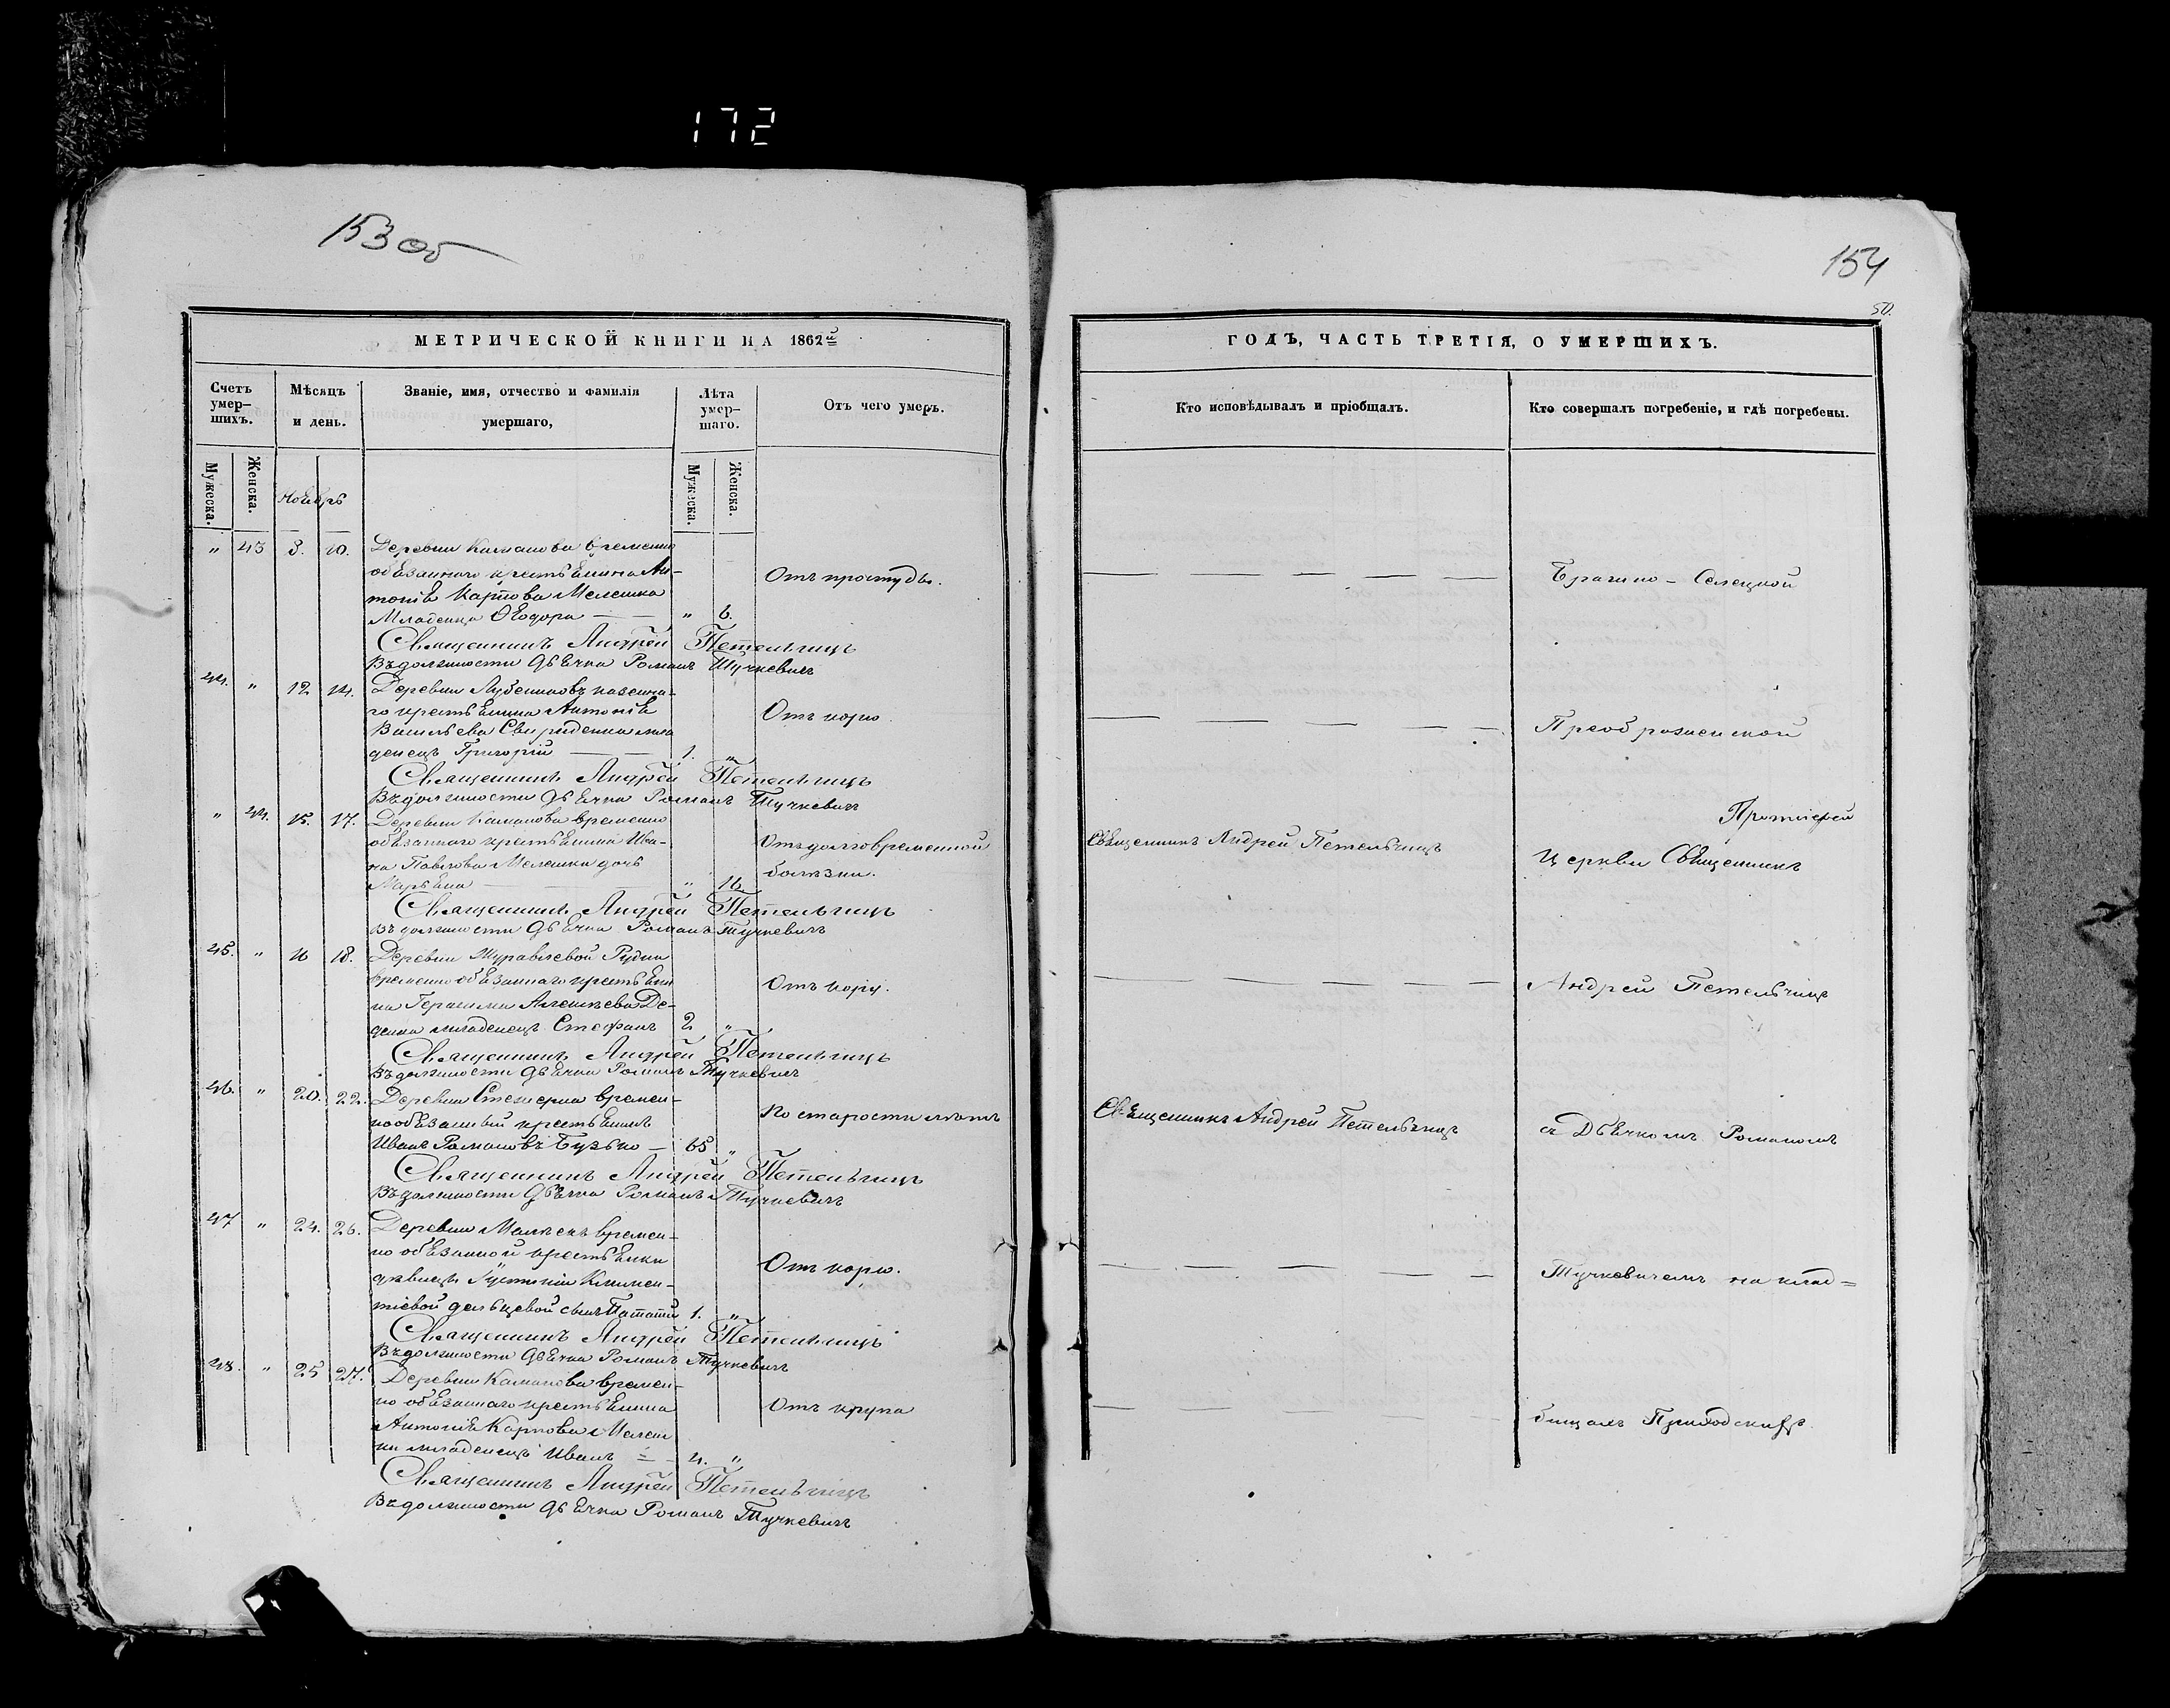 172
153 об
154
50.
МЕТРИЧЕСКОЙ КНИГИ НА 1862й
ГОДЪ, ЧАСТЬ ТРЕТІЯ, О УМЕРШИХЪ.
Счетъ умер-
шихъ.
Мѣсяцъ
и день.
Званіе, имя, отчество и фамилія
умершаго,
Лѣта
умер-
шаго.
Отъ чего умеръ.
Кто исповѣдывалъ и пріобщалъ.
Кто совершалъ погребеніе, и гдѣ погребены.
Мужеска.
Женска.
Ноябрь
Мужеска.
Женска.
" 43 8. 10. Деревни Каманова временно
обязаннаго крестьянина Ан-
тонія Карпова Мелешка
Младенца Ѳеодора — " 6.
Отъ простуды.
Брагино-Селецкой
Священникъ Андрей Петельчицъ
Въ должности дьячка Романъ Тучкевичъ
44. " 12 14. Деревни казенна-
го крестьянина Антонія
Васильева Свириденка мла
денецъ Григорій — 1. "
Отъ корю
Преображенской
Священникъ Андрей Петельчицъ
Въ должности дьячка Романъ Тучкевичъ
" 44. 15. 17. Деревни Каманова временно
обязаннаго крестьянина Ива-
на Павлова Мелешки дочь
Марьяна — " 16
Отъ долговременной
болѣзни.
Священникъ Андрей Петельчицъ
Протіерей
Церкви Священникъ
Священникъ Андрей Петельчицъ
Въ должности дьячка Романъ Тучкевичъ
45. " 16 18. Деревни Журавлевой Рудни
временно обязаннаго крестьяни
на Герасима Алексѣева Де-
денка младенецъ Стефанъ 2 "
Отъ корю.
Андрей Петельчицъ
Священникъ Андрей Петельчицъ
Въ должности дьячка Романъ Тучкевичъ
46. " 20. 22. Деревни времен-
нообязанный крестьянинъ
Иванъ Романовъ Бузько — 65 "
По старости лѣтъ
Священникъ Андрей Петельчицъ
съ Дьячкомъ Романомъ
Священникъ Андрей Петельчицъ
Въ должности дьячка Романъ Тучкевичъ
47 " 24. 26. Деревни времен-
но обязанной крестьянки
дѣвицы Іустиніи Климен-
тіевой сынъ 1. "
Отъ корю.
Тучкевичемъ на клад=
Священникъ Андрей Петельчицъ
Въ должности дьячка Романъ Тучкевичъ
48. " 25 27. Деревни Каманова времен-
но обязаннаго крестьянина
Антонія Карпова Мелеш
ки младенецъ Иванъ — 4. "
Отъ крупа
бищахъ Приходскихъ.
Священникъ Андрей Петельчицъ
Въ должности дьячка Романъ Тучкевичъ